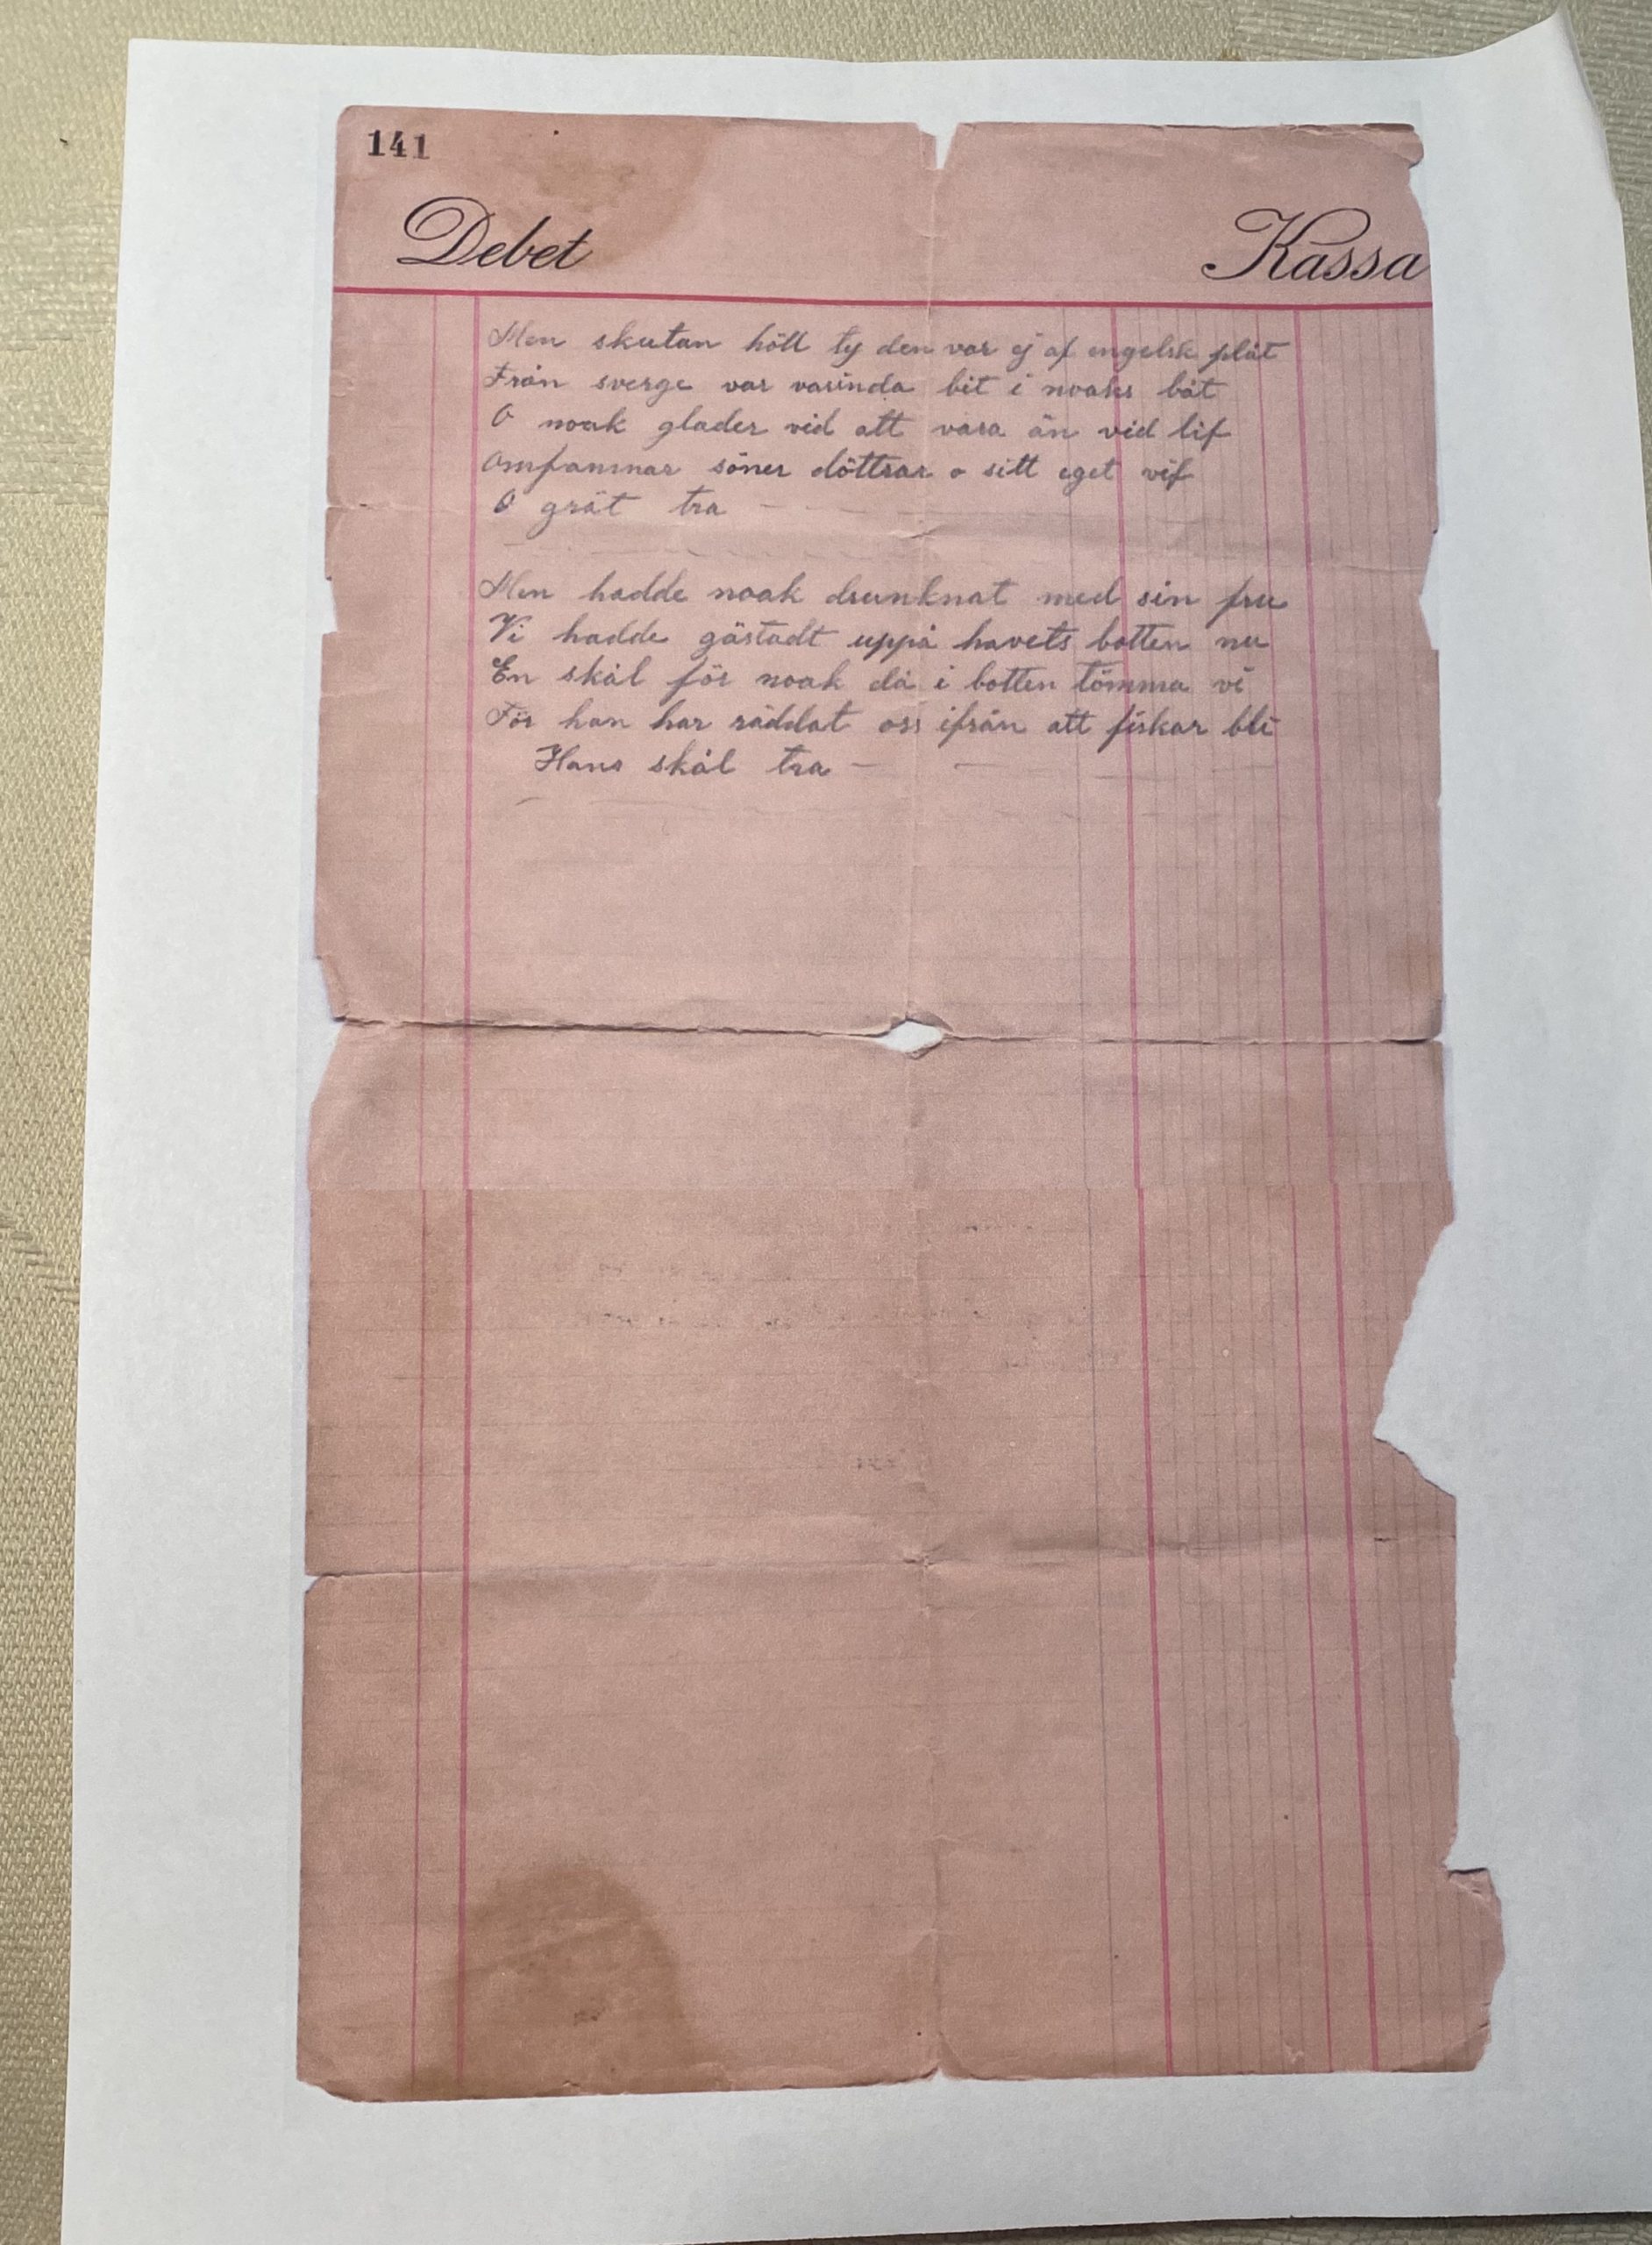 141
Debet Kassa
Men skutan höll ty den var ej af engelsk plåt
Från sverge var varinda bit i noaks båt
O noak glader vid att vara än vid lif
Omfamnar söner döttrar o sitt eget vif
O gråt tra — — —
Men hadde noak drunknat med sin fru
Vi hadde gästadt uppå havets botten nu
En skål för noak då i botten tömma vi
För han har räddat oss ifrån att fiskar bli
Hans skål tra — — —